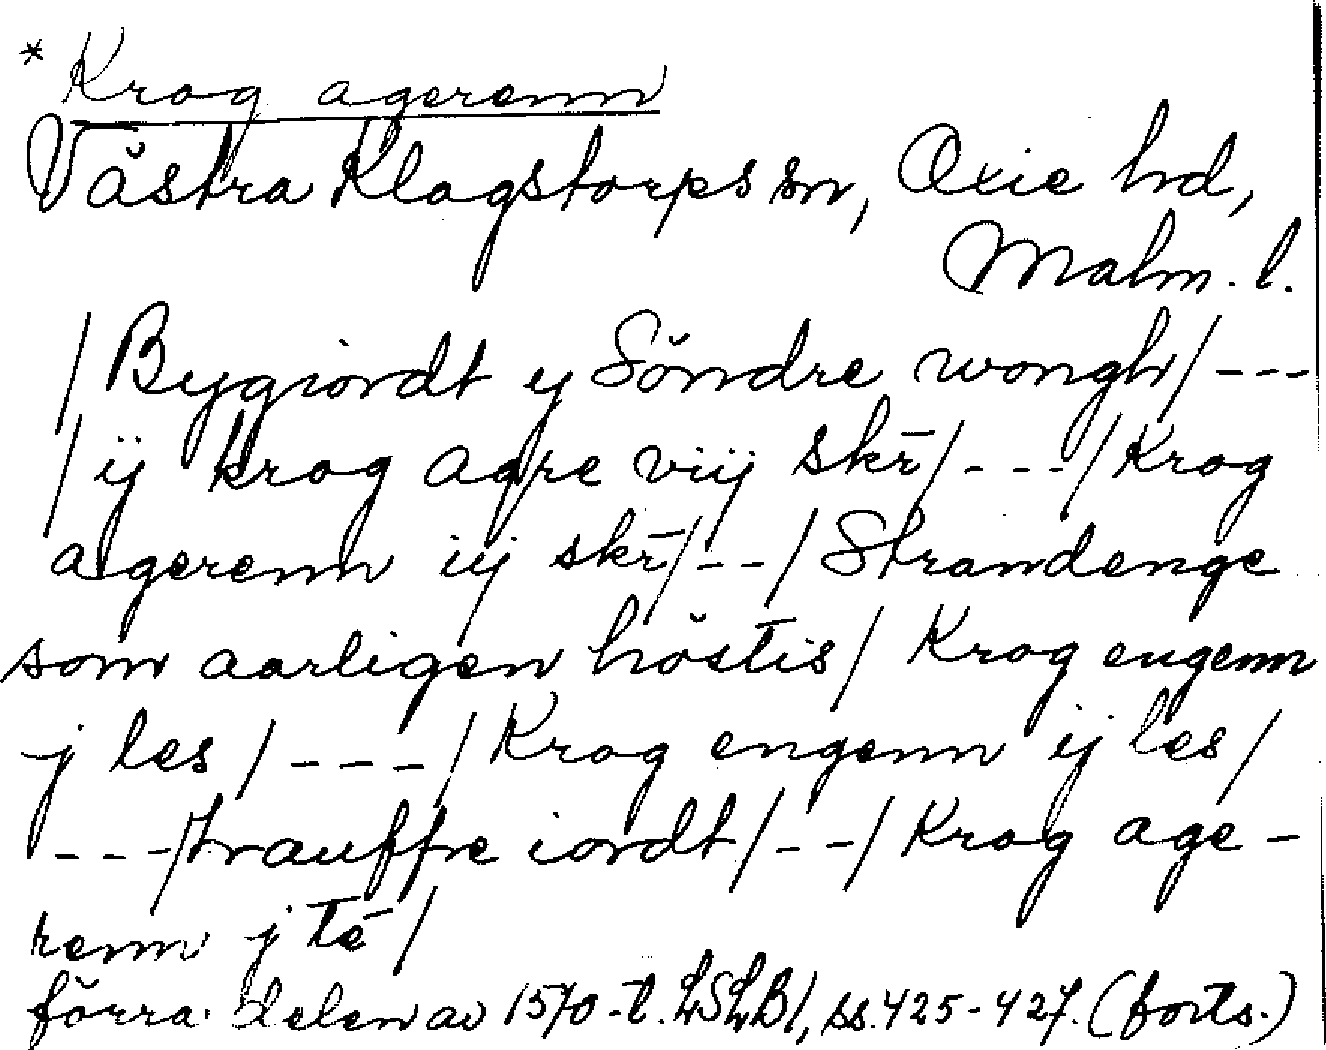 * Krog agerenn
Västra Klagstorps sn, Oxie hd,
Malm. l.
/ Bygiordt y Söndre wongh / ---
/ ij krog agre viij skr̄ / --- / Krog
agerenn iij skr̄ / -- / Strandenge
som aarligen höstis / Krog engenn
j les / --- / Krog engenn ij les /
--- / trauffre iordt / -- / Krog age-
renn j tē /
förra delen av 1570-t. LSLB 1, ss. 425-427. (forts.)